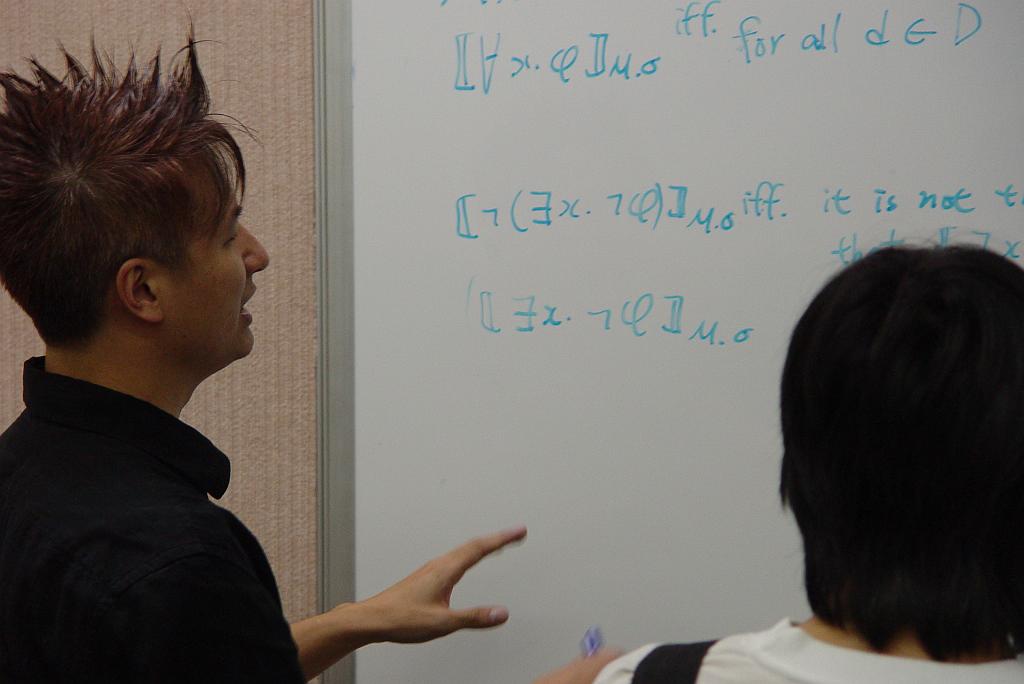 ⟦∀x.φ⟧M.σ iff. for all d ∈ D
⟦¬(∃x.¬φ)⟧M.σ iff. it is not
that
⟦∃x.¬φ⟧M.σ